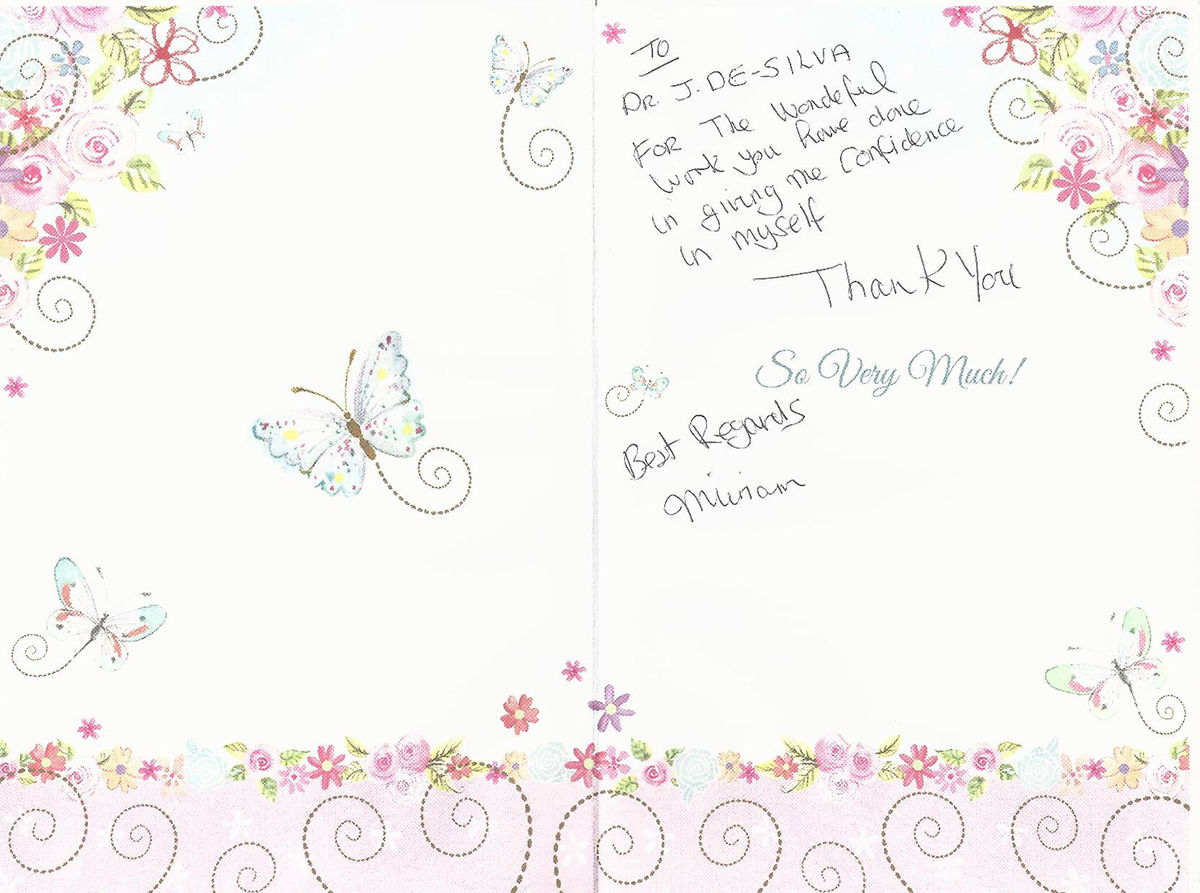 TO
DR. J. DE-SILVA
FOR The Wondeful
work you have done
in giving me Confidence
in myself
Thank You
So Very Much!
Best Regards
Miriam